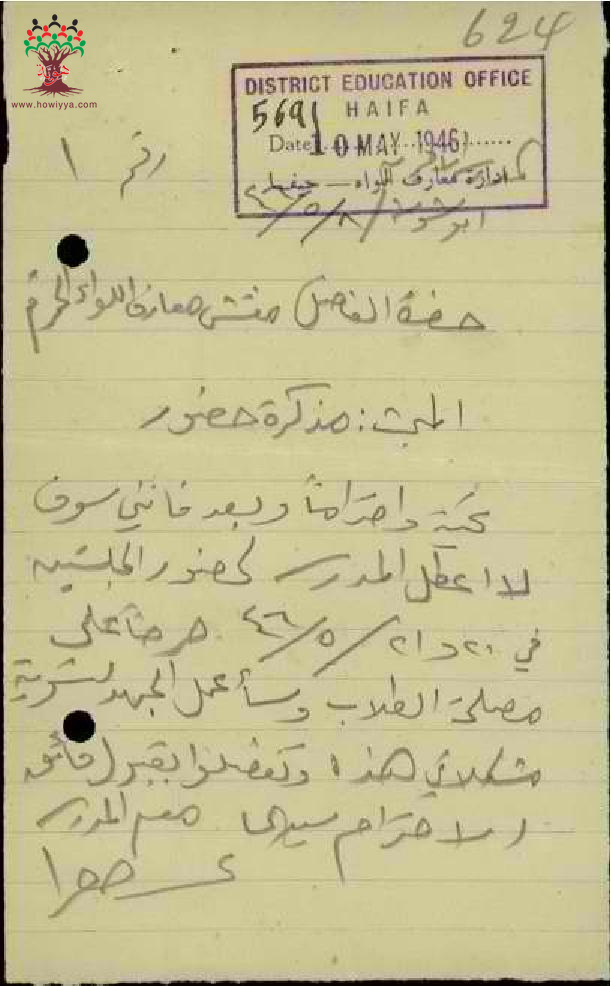 624
www.howiyya.com
DISTRICT EDUCATION OFFICE
HAIFA
5691
Date 10 MAY 1946
ادارة معارف اللواء — حيفا
رقم ١
ابو شوشة ٨/٥/٤٦
حضرة الفاضل مفتش معارف اللواء المحترم
المبحث: مذكرة حضور
تحية واحتراماً وبعد فانني سوف
لا اعطل المدرسة لحضور الجلستين
في ٢٠ و ٢١/٥/٤٦ حرصاً على
مصلحة الطلاب وسأعمل الجهد لتسوية
مشكلاتي هذا وتفضلوا بقبول فائق
الاحترام سيدي معلم المدرسة